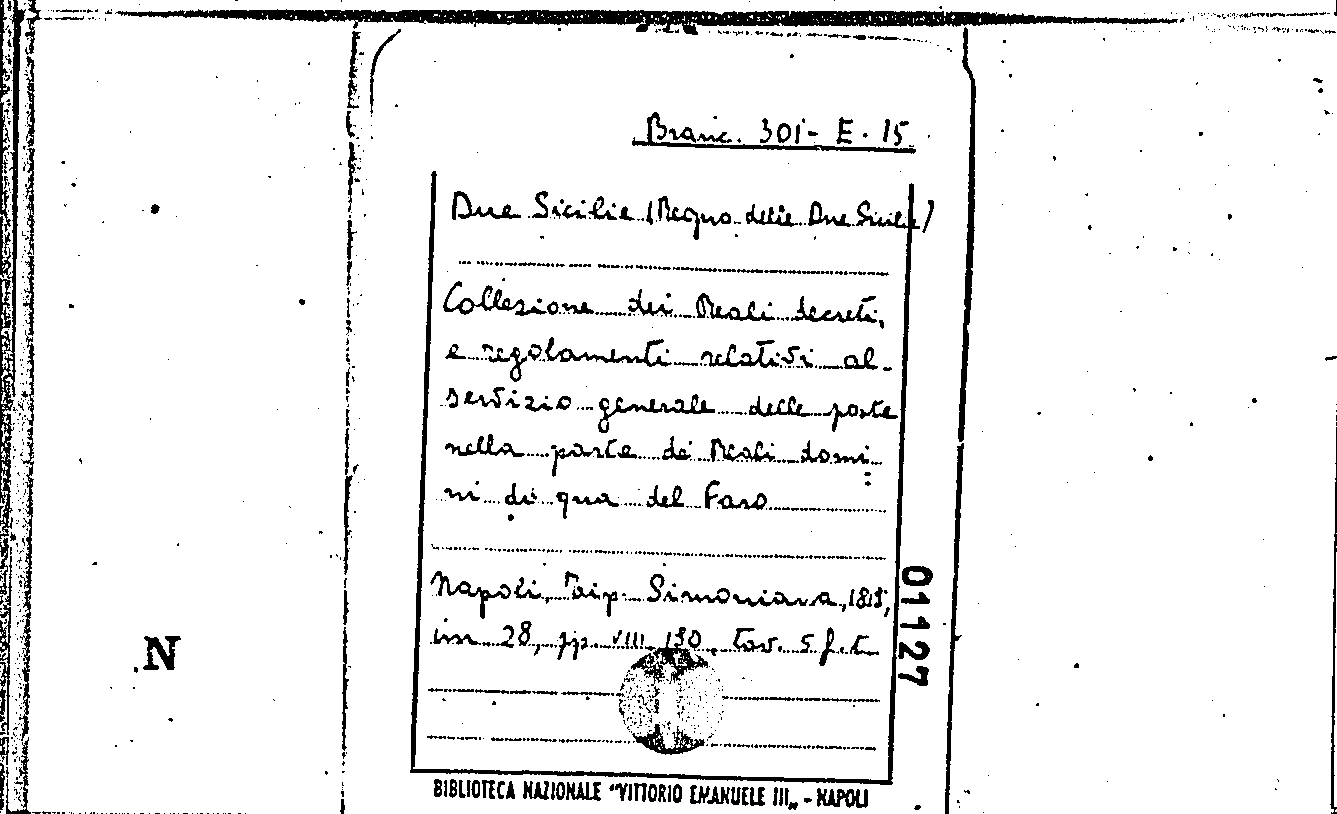 Branc. 301- E. 15
Due Sicilie (Regno delle Due Sicilie)
Collezione dei Reali decreti,
e regolamenti relativi al
servizio generale delle poste
nella parte de' Reali domi
ni di qua del Faro
Napoli, Tip. Simoniana,
in 28, pp. VIII 190, tav. 5 f.t.
01127
N
BIBLIOTECA NAZIONALE "VITTORIO EMANUELE III„ - NAPOLI